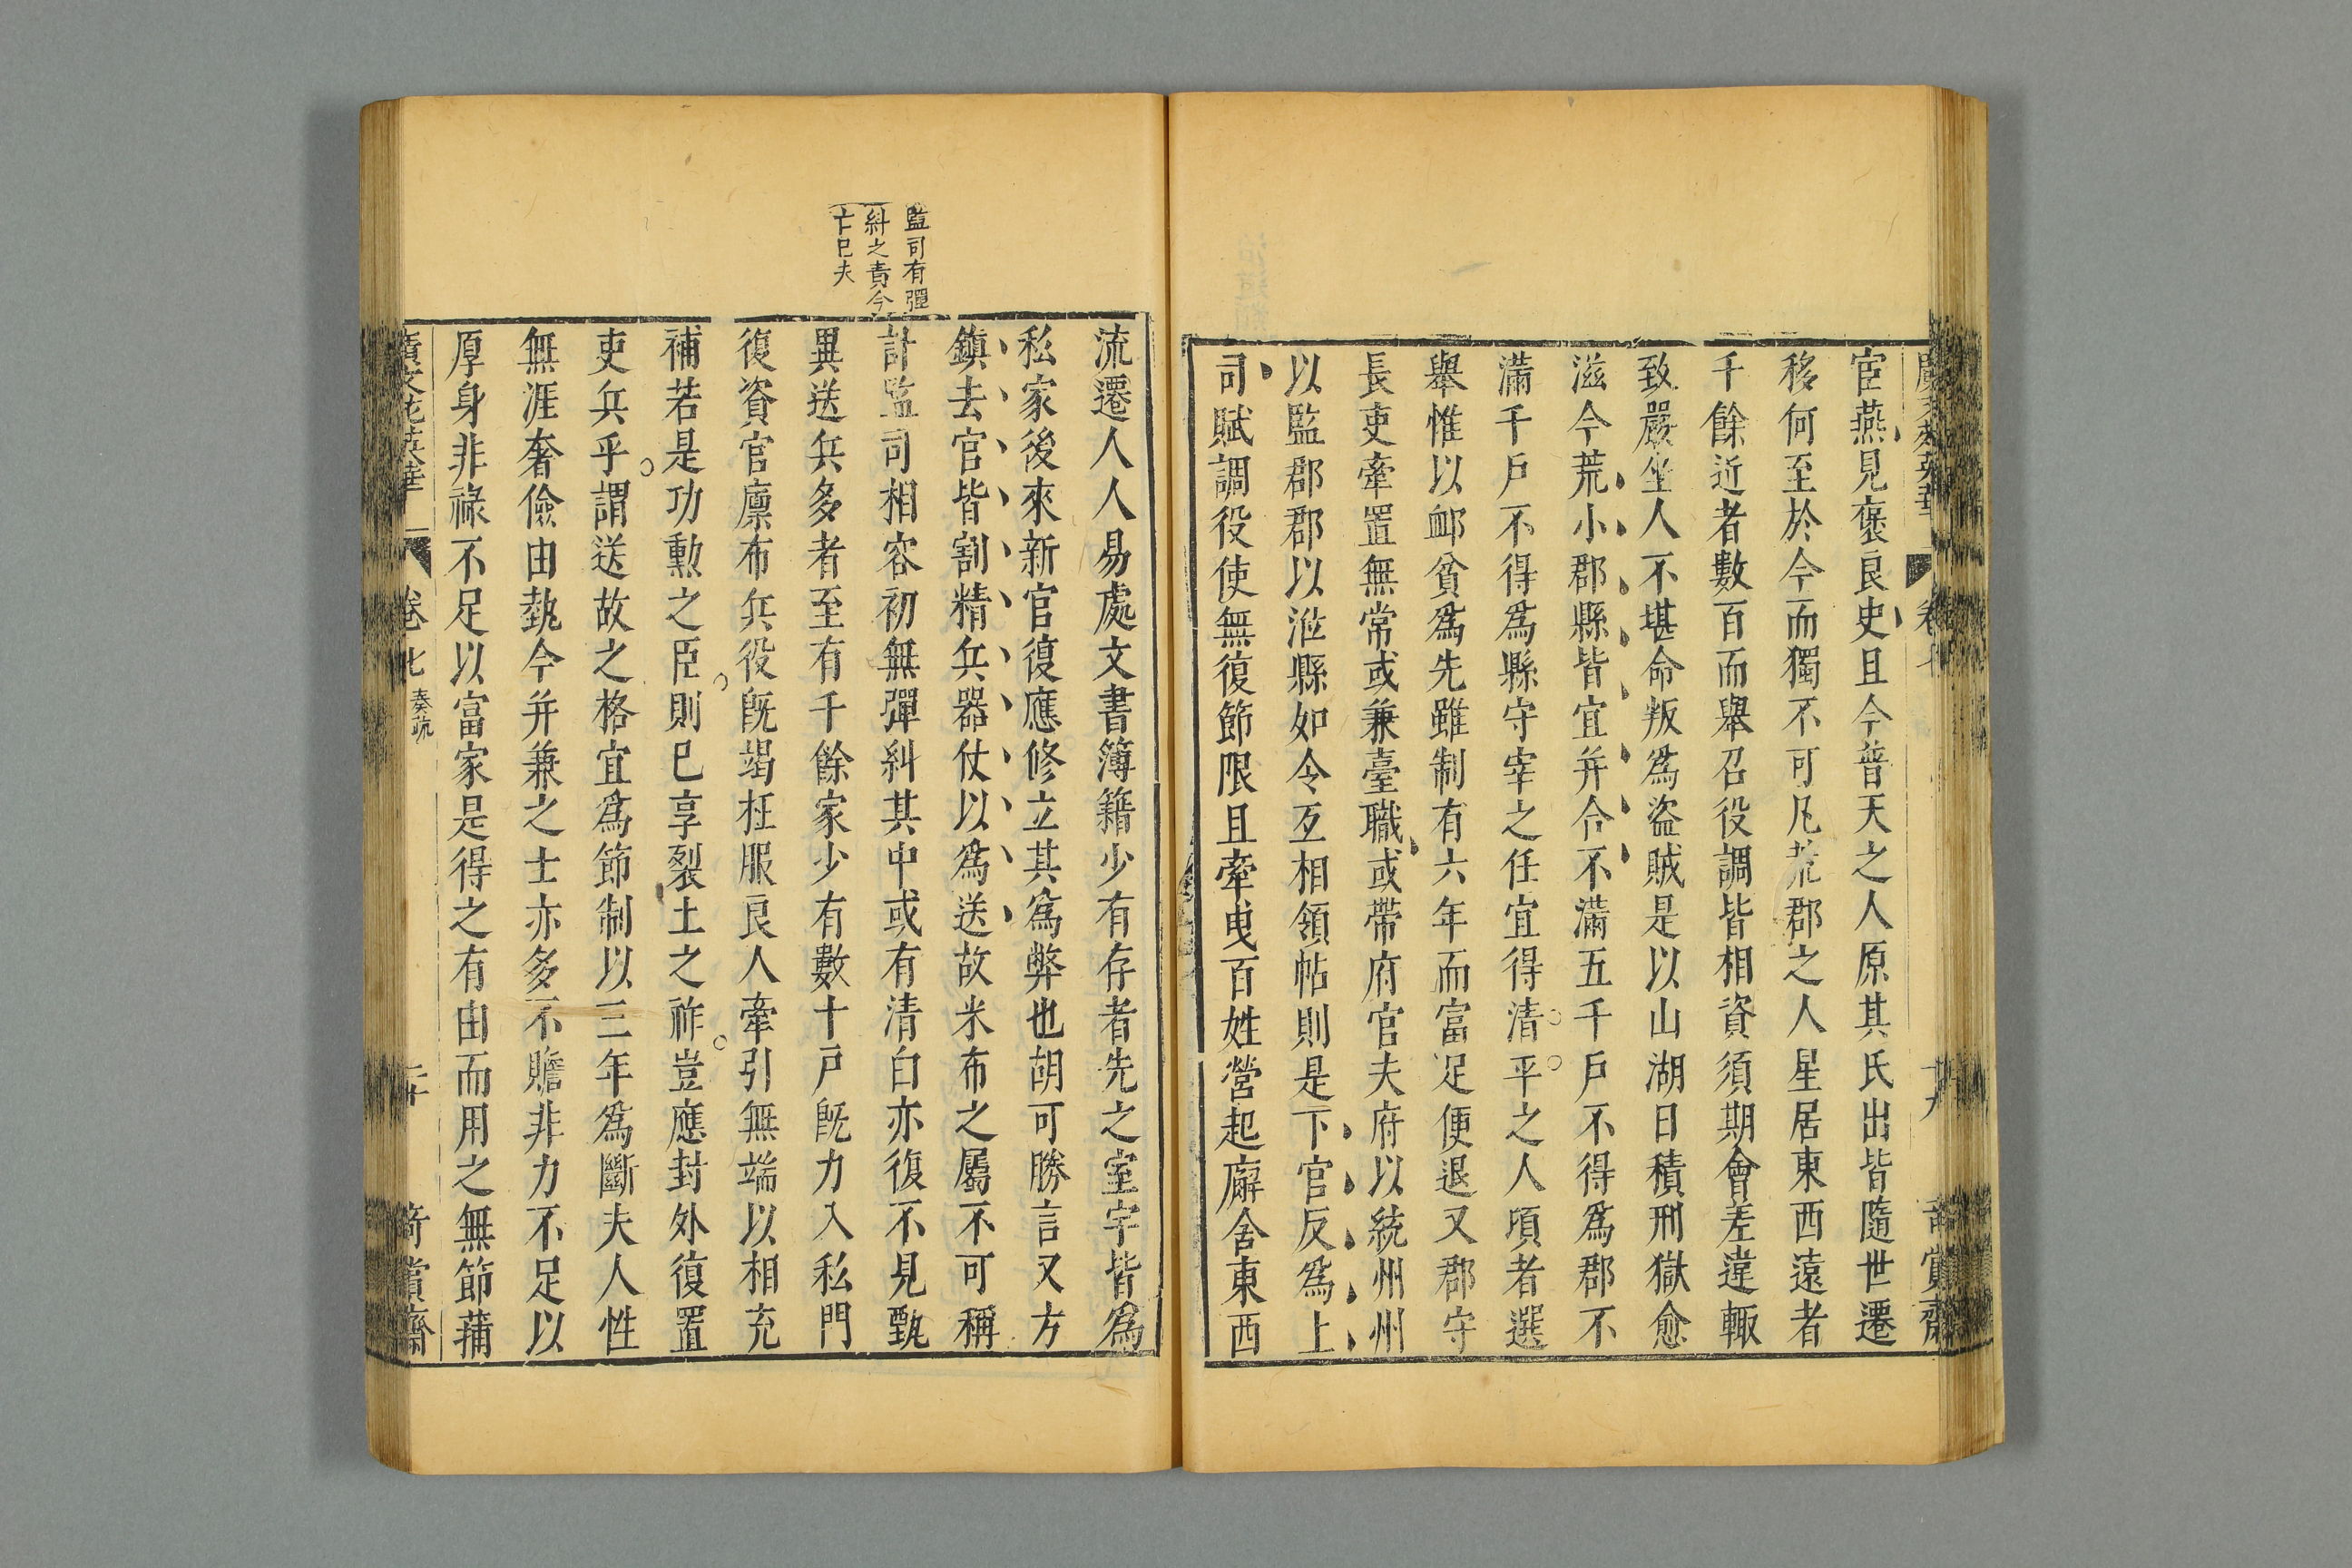 廣文苑英華 卷七 十九 奇賞齋
宦燕見褒良史且今普天之人原其氏出皆隨世遷
移何至於今而獨不可凡荒郡之人星居東西遠者
千餘近者數百而舉召役調皆相資須期會差違輙
致嚴坐人不堪命叛爲盜賊是以山湖日積刑獄愈
滋今荒小郡縣皆宜并合不滿五千戶不得爲郡不
滿千戶不得爲縣守宰之任宜得清平之人頃者選
舉惟以䘏貧爲先雖制有六年而富足便退又郡守
長吏牽置無常或兼臺職或帶府官夫府以統州州
以監郡郡以涖縣如令互相領帖則是下官反爲上
司賦調役使無復節限且牽曵百姓營起廨舍東西
監司有彈
糾之責今
亡已夫
流遷人人易處文書簿籍少有存者先之室宇皆爲
私家後來新官復應修立其爲弊也胡可勝言又方
鎮去官皆割精兵器仗以爲送故米布之屬不可稱
計監司相容初無彈糾其中或有清白亦復不見甄
異送兵多者至有千餘家少有數十戶旣力入私門
復資官廪布兵役旣竭枉服良人牽引無端以相充
補若是功勲之臣則已享裂土之祚豈應封外復置
吏兵乎謂送故之格宜爲節制以三年爲斷夫人性
無涯奢儉由埶今并兼之士亦多不贍非力不足以
厚身非祿不足以富家是得之有由而用之無節蒱
廣文苑英華 卷七 奏疏 二十 奇賞齋